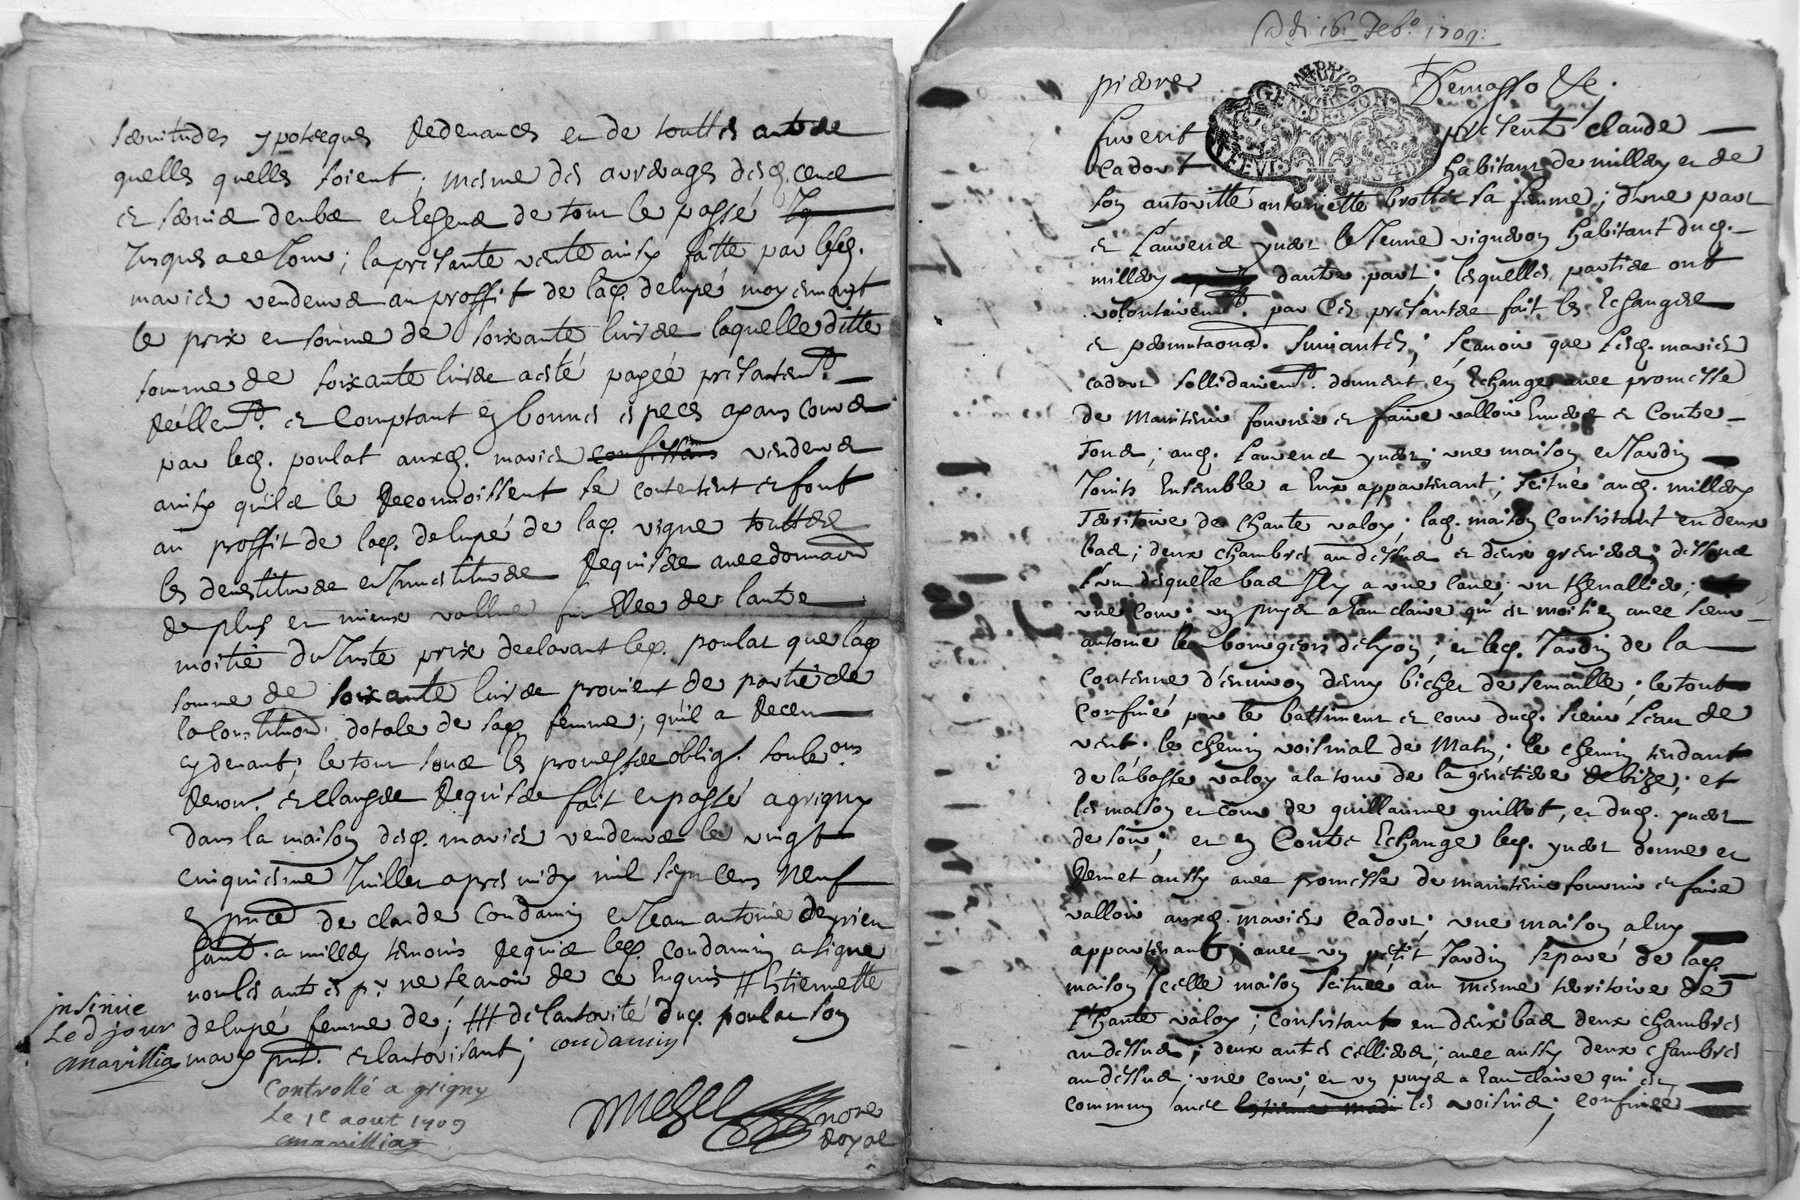 servitudes ypoteques Redevances et de touttes autres
quelles quelles soient; mesme des arrerages desd. cens
et servis deubs et Escheus de tout le passé
Jusques a ce Jour; la presante vente ainsy faitte par lesd.
mariés vendeurs au proffit de lad. delupé moyennant
le prix et somme de soixante livres laquelle ditte
somme de soixante livres a esté payée presantemt.
Réellemt. et Comptant en bonnes especes ayans cours
par led. poulat auxd. mariés confessans vendeurs
ainsy qu'ils le Reconnoissent se contentent et font
au proffit de lad. delupé de lad. vigne touttes
les devestitures et Jnvestitures Requises avec donnaon
de plus et mieux vallue fut Elle de l'autre
moitié du Juste prix declarant led. poulat que lad.
somme de soixante livres provient de partie de
la Constituon. dotale de sad. femme; qu'il a Receu
cy devant; le tout sous les promesses oblig. soubs.ons
Renon. et clauses Requises fait et passé a grigny
dans la maison desd. mariés vendeurs le vingt
cinquiesme Juillet apres midy mil sept cens Neuf
en pnce de claude Condamin et Jean antoine
habit. a millery temoins Requis led. condamin a signé
non les autres p.r ne scavoir de ce Enquis # Estiennette
delupé femme de; ## de l'autorité dud. poulat son
mary pnt. et l'autorisant; condamin
insinué
Le d jour
anavillias
Controllé a grigny
Le 1e aout 1709
anavillias
nore
Royal
16. feb.o 1709:
pierre
GEN. DE LYON
furent present claude
Cadort habitant de millery et de
son autoritté antoinette brottet sa femme; d'une part
et Laurens ynart le Jeune vigneron habitant dud.
millery d'autre part; lesquelles parties ont
volontairemt. par Ces presantes fait les Echanges
et permutaons. suivantes; sçavoir que lesd. mariés
cadort sollidairemt. donnent en Echange avec promesse
de Maintenir fournir et faire valloir Envers et Contre
Tous; aud. Laurens ynart; une maison et Jardin
Joints Ensemble a Eux appartenant; scitué aud. millery
Territoire de Chante valoy; lad. maison Consistant en deux
bas; deux chambres au dessus et deux greniers; dessous
l'un desquels bas Il y a une cave; un thenallier;
une cour; un puys a Eau claire qui est moitien avec sieur
antoine bourgeois de Lyon; et led. Jardin de la
Contenue d'environ demy bichet de semaille; le tout
Confiné par le battiment et cour dud. sieur de
vent; le chemin voisinal de Matin; le chemin tendant
de la basse valoy a la tour de la de bize; et
les maison et cour de guillaume guillot, et dud. ynart
de soir; et en Contre Echange led. ynart donne et
Remet aussy avec promesse de maintenir fournir et faire
valloir auxd. mariés Cadort; une maison a luy
appartenant; avec un petit Jardin separé de lad.
maison Jcelle maison scituée au mesme territoire de
Chante valoy; Consistant en deux bas deux chambres
au dessus; deux autres celliers; avec aussy deux chambres
au dessus; une cour; et un puys a Eau claire qui est
commun avec les voisins; confinée